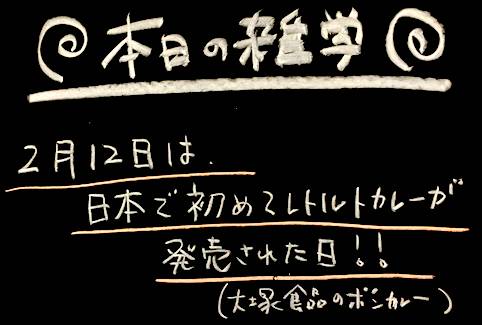 本日の雑学
2月12日は、
日本で初めてレトルトカレーが
発売された日!!
(大塚食品のボンカレー)